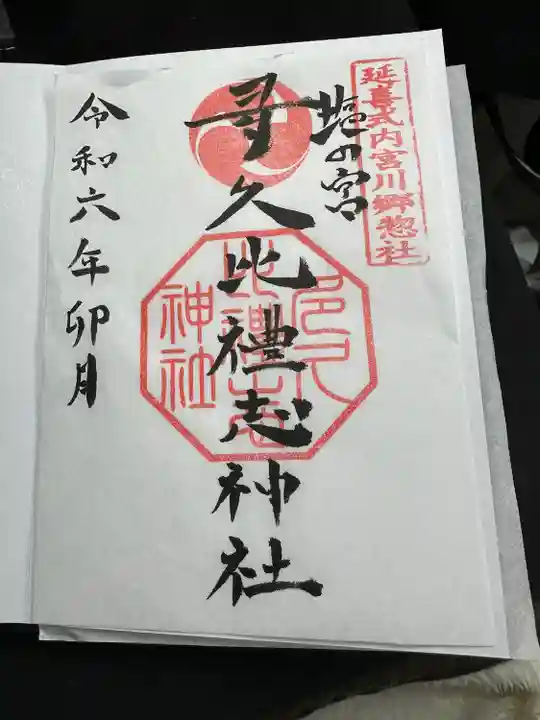 延喜式内宮川郷惣社
塩の宮
多久比禮志神社
多久比禮志神社
令和六年卯月